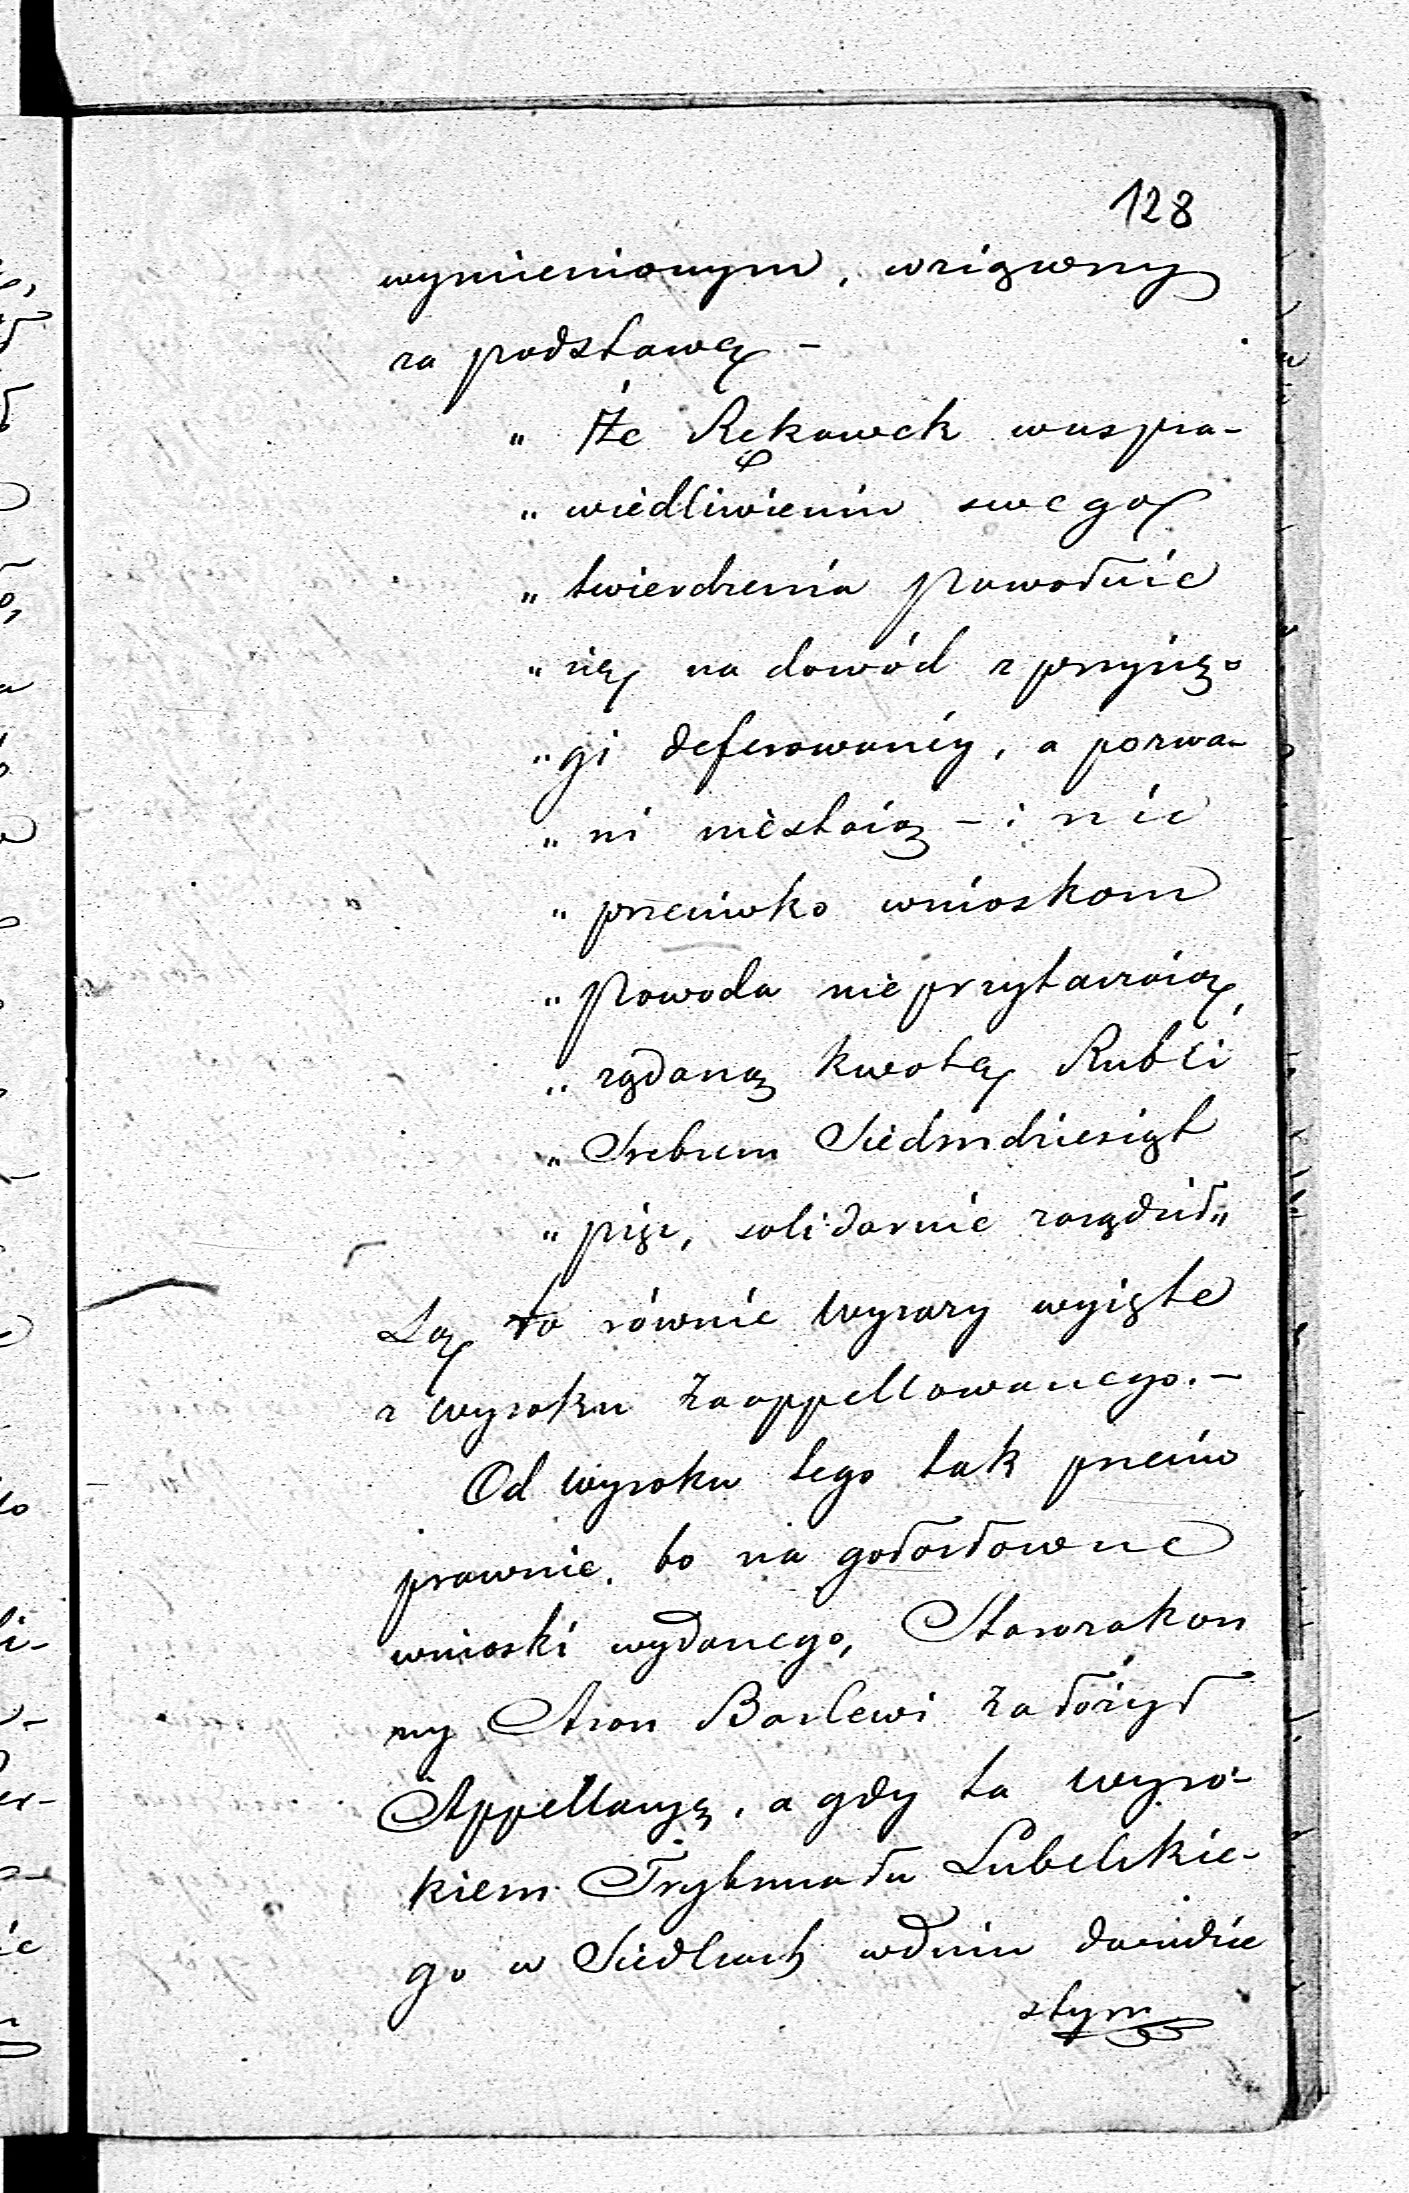 128
wymienionym, wziąwszy
za podstawę –
„ Że Rękawek wuspra-
„ wiedliwieniu swego
„ twierdzenia powołuie
„ się na dowód z przysię-
„ gi deferowanéy, a pozwa-
„ ni niestoią – i nic
„ przeciwko wnioskom
„ Powoda nieprzytaczaią,
„ rządaną kwotę Rubli
„ Srebrem Siedmdziesiąt
„ pięć, solidarnie zasądził„
Są to równie Wyrazy wyięte
z Wyroku zaappellowanego. –
Od Wyroku tego tak przeciw
prawnie, bo na gołosłowne
wnioski wydanego, Starozakon
ny Aron Barlewi założył
Appellacyę, a gdy ta Wyro-
kiem Trybunału Lubelskie-
go w Siedlcach wdniu dwudzie
stym